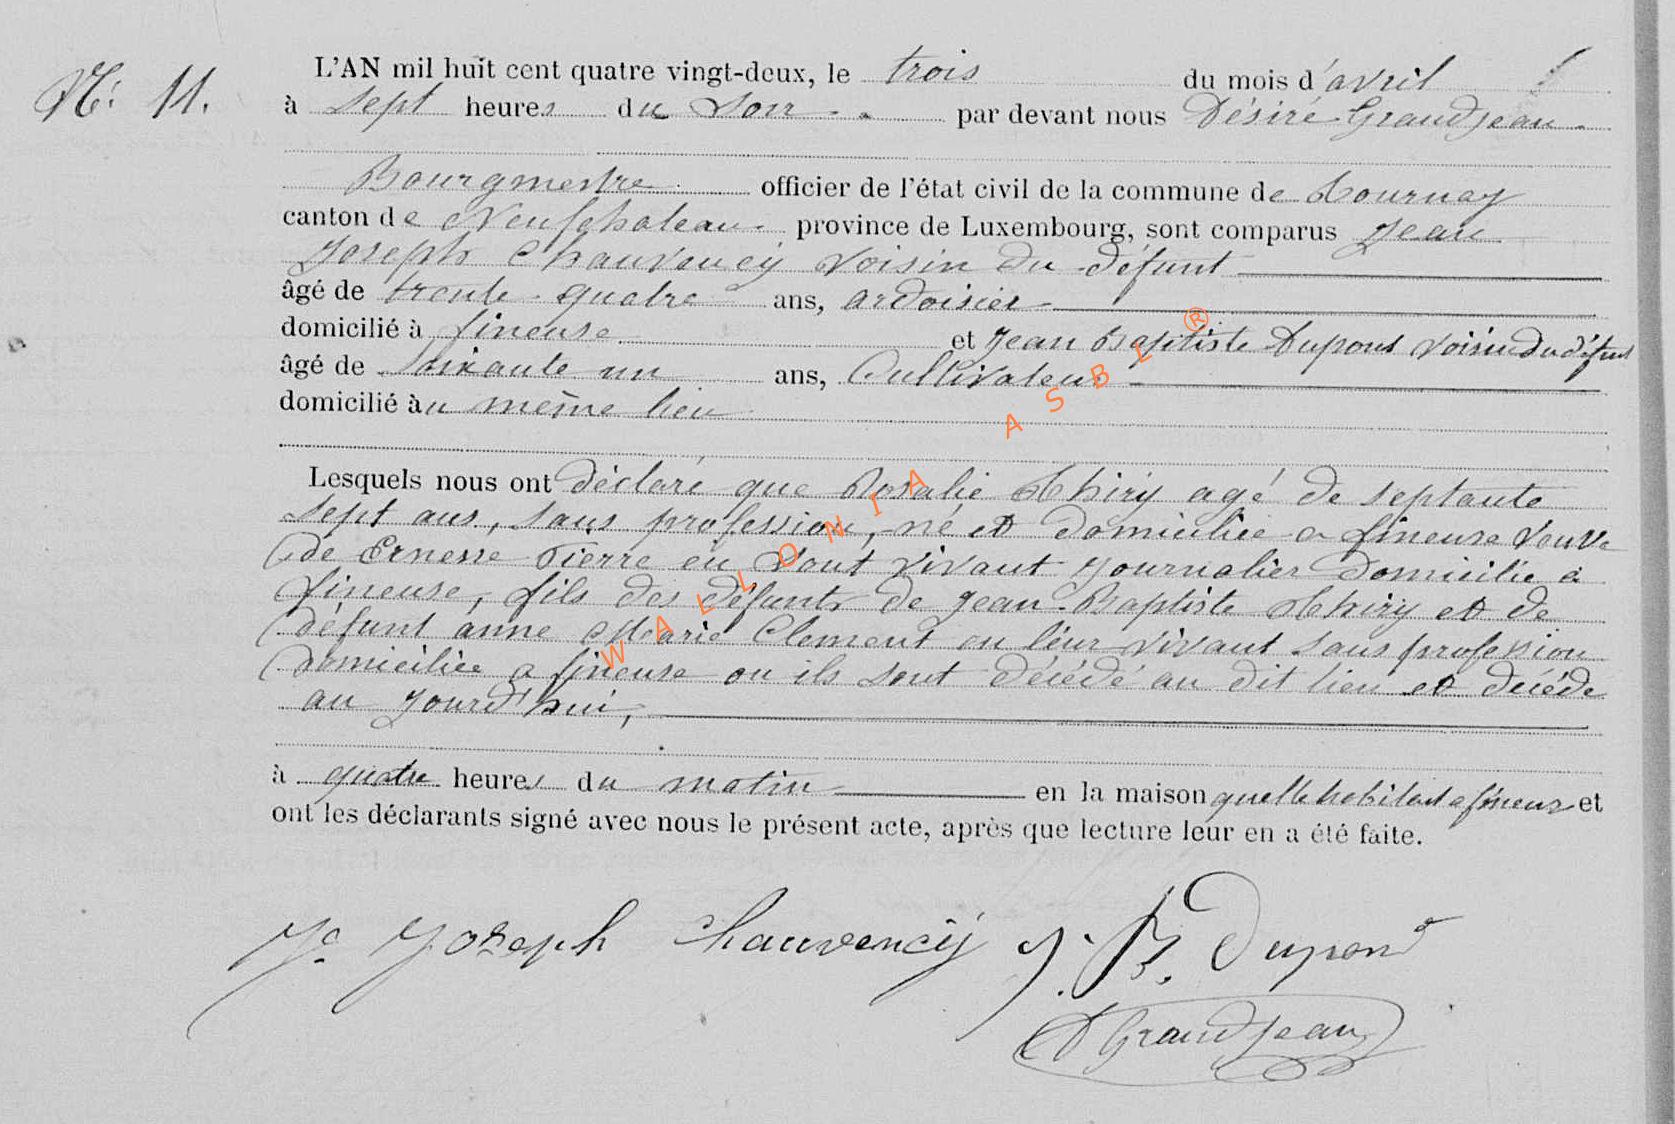 N° 11.
L'AN mil huit cent quatre vingt-deux, le trois du mois d'avril
à sept heures du Soir. par devant nous Désiré Grandjean
Bourgmestre officier de l'état civil de la commune de Tournay
canton de Neufchateau province de Luxembourg, sont comparus Jean
Joseph Chauvencÿ voisin du défunt
âgé de trente-quatre ans, ardoisier
domicilié à fineuse et Jean Baptiste Dupont voisin du défunt
âgé de soixante un ans, Cultivateur
domicilié au même lieu
Lesquels nous ont déclaré que Rosalie Thiry agé de septante
sept ans, sans profession, né et domiciliée a fineuse veuve
de Ernesse Pierre en sont vivant Journalier domicilié a
fineuse, fils des défunts de Jean-Baptiste Thiry et de
défunt anne Marie Clement en leur vivant sans profession
domiciliée a fineuse ou ils sont décédé au dit lieu et décédé
au jourd'hui,
à quatre heures du matin en la maison quelle habitait a fineuse et
ont les déclarants signé avec nous le présent acte, après que lecture leur en a été faite.
Jn Joseph Chauvencÿ J. B. Dupond
D Grandjean
WALLONIA ASBL ®